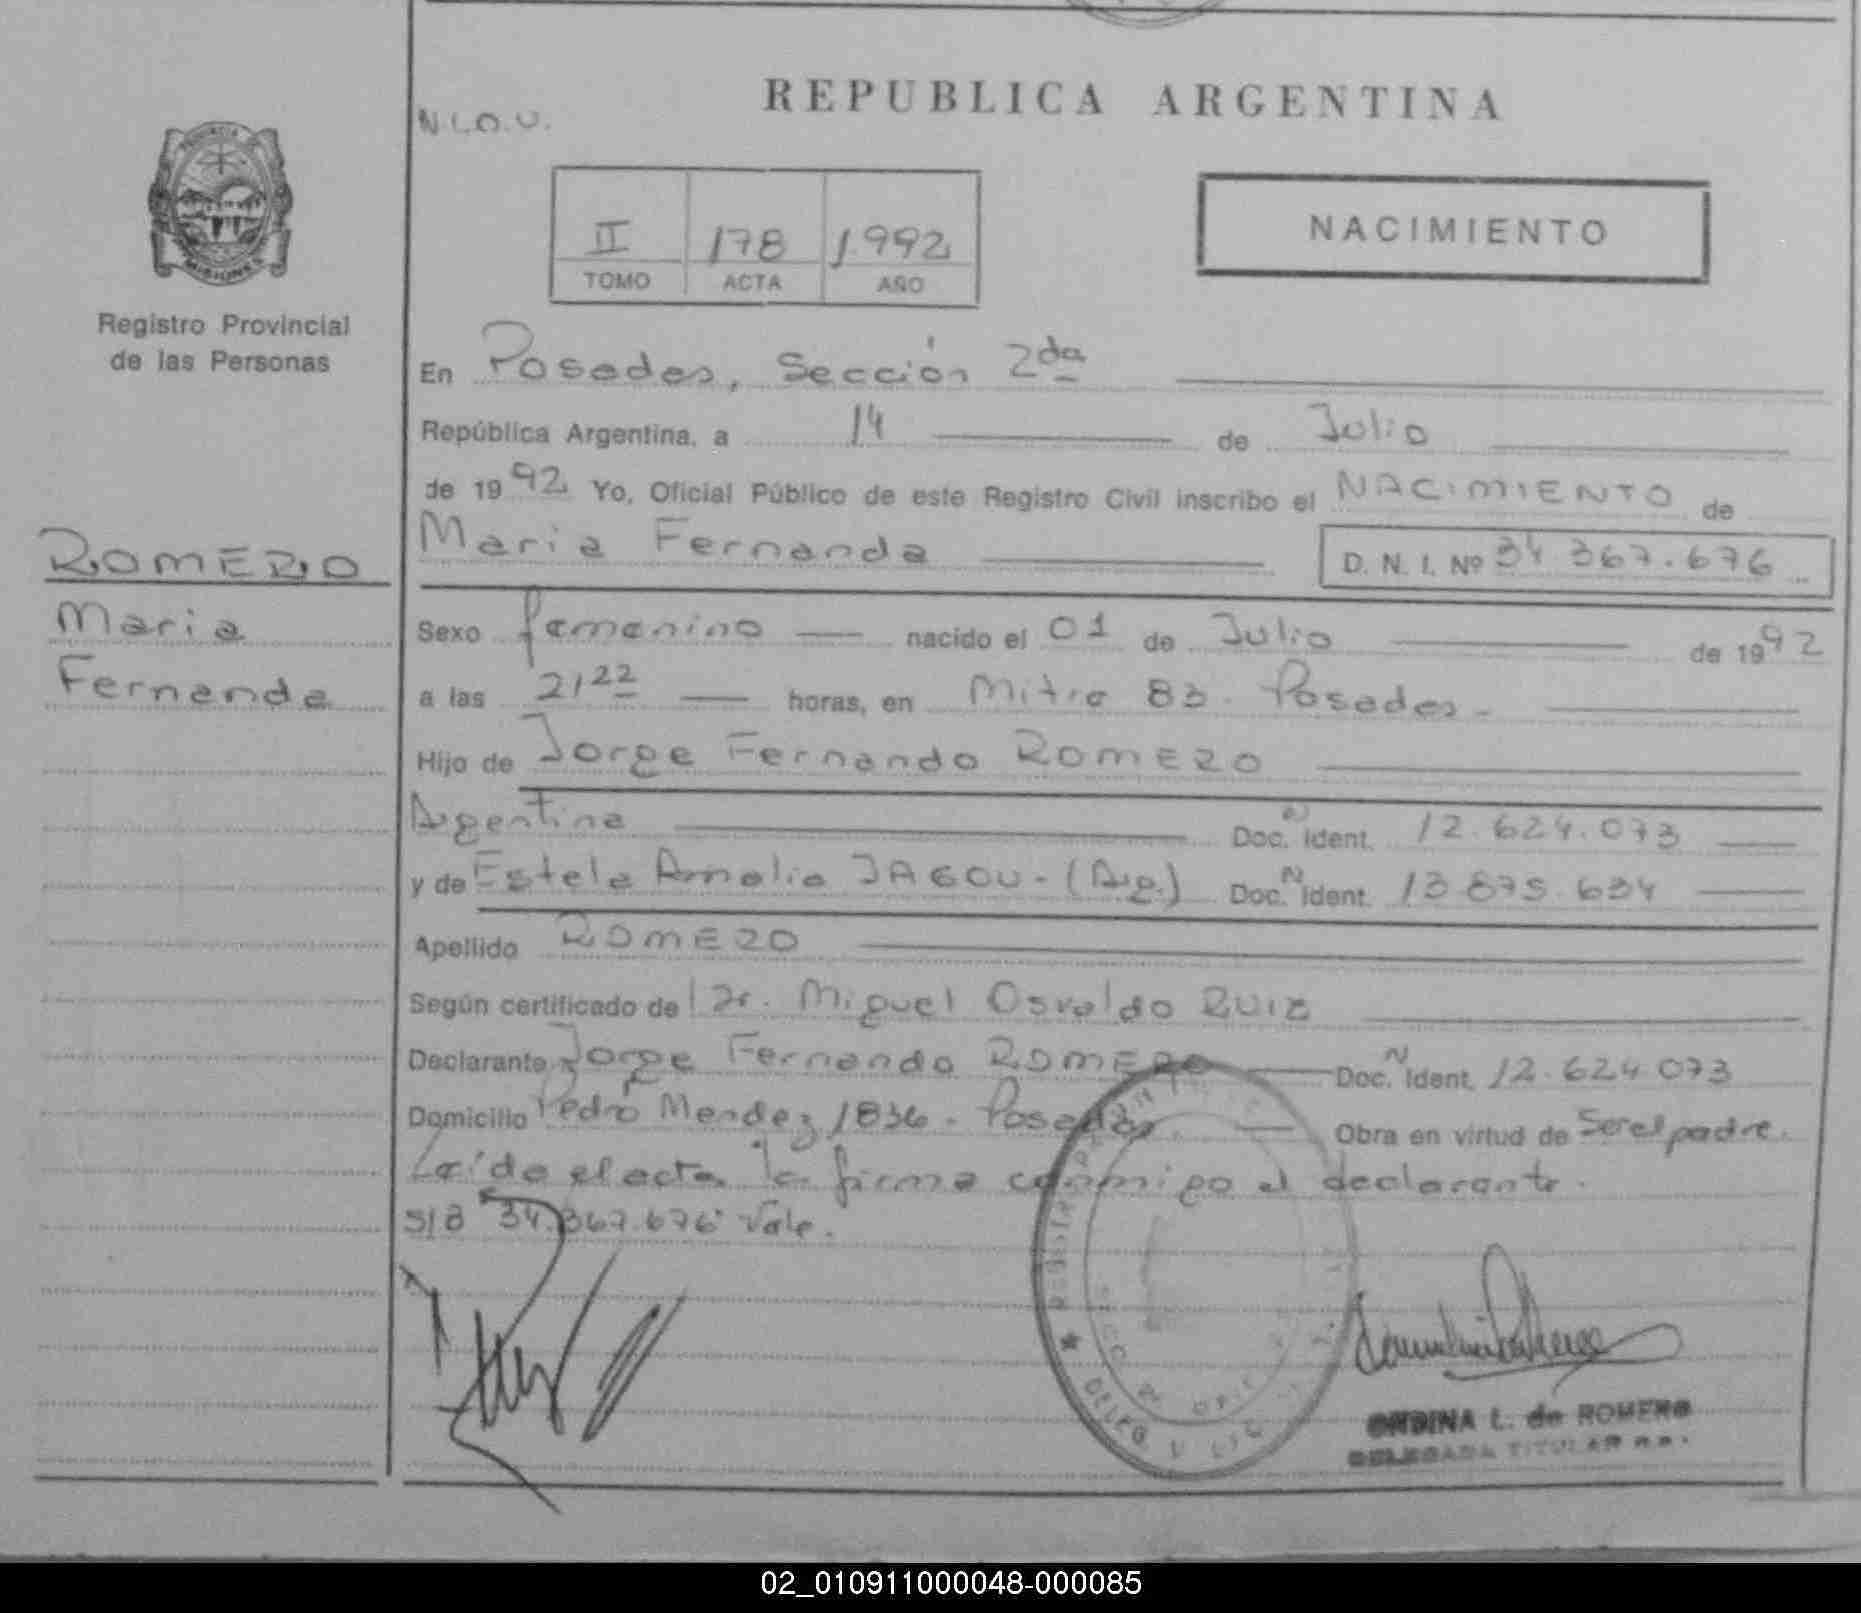 REPUBLICA ARGENTINA
N.I.O.U.
II 178 1992
TOMO ACTA AÑO
NACIMIENTO
MISIONES
Registro Provincial
de las Personas
ROMERO
Maria
Fernanda
En Posadas, Sección 2da
República Argentina, a 14 de Julio
de 1992 Yo, Oficial Público de este Registro Civil inscribo el NACIMIENTO de
Maria Fernanda D. N. I. Nº 34 367.676
Sexo femenino nacido el 01 de Julio de 1992
a las 21 22 horas, en Mitre 83. Posadas.
Hijo de Jorge Fernando ROMERO
Argentina Doc. N Ident. 12.624.073
y de Estela Amalia JAGOU - (Arg.) Doc. N Ident. 13.875.634
Apellido ROMERO
Según certificado de Dr. Miguel Osvaldo RUIZ
Declarante Jorge Fernando ROMERO Doc. N Ident. 12.624 073
Domicilio Pedro Mendez 1836 - Posadas. Obra en virtud de Ser el padre.
Leída el acta la firma conmigo el declarante.
S/B "34.367.676" Vale.
ONDINA L. de ROMERO
DELEGADA TITULAR
02_010911000048-000085